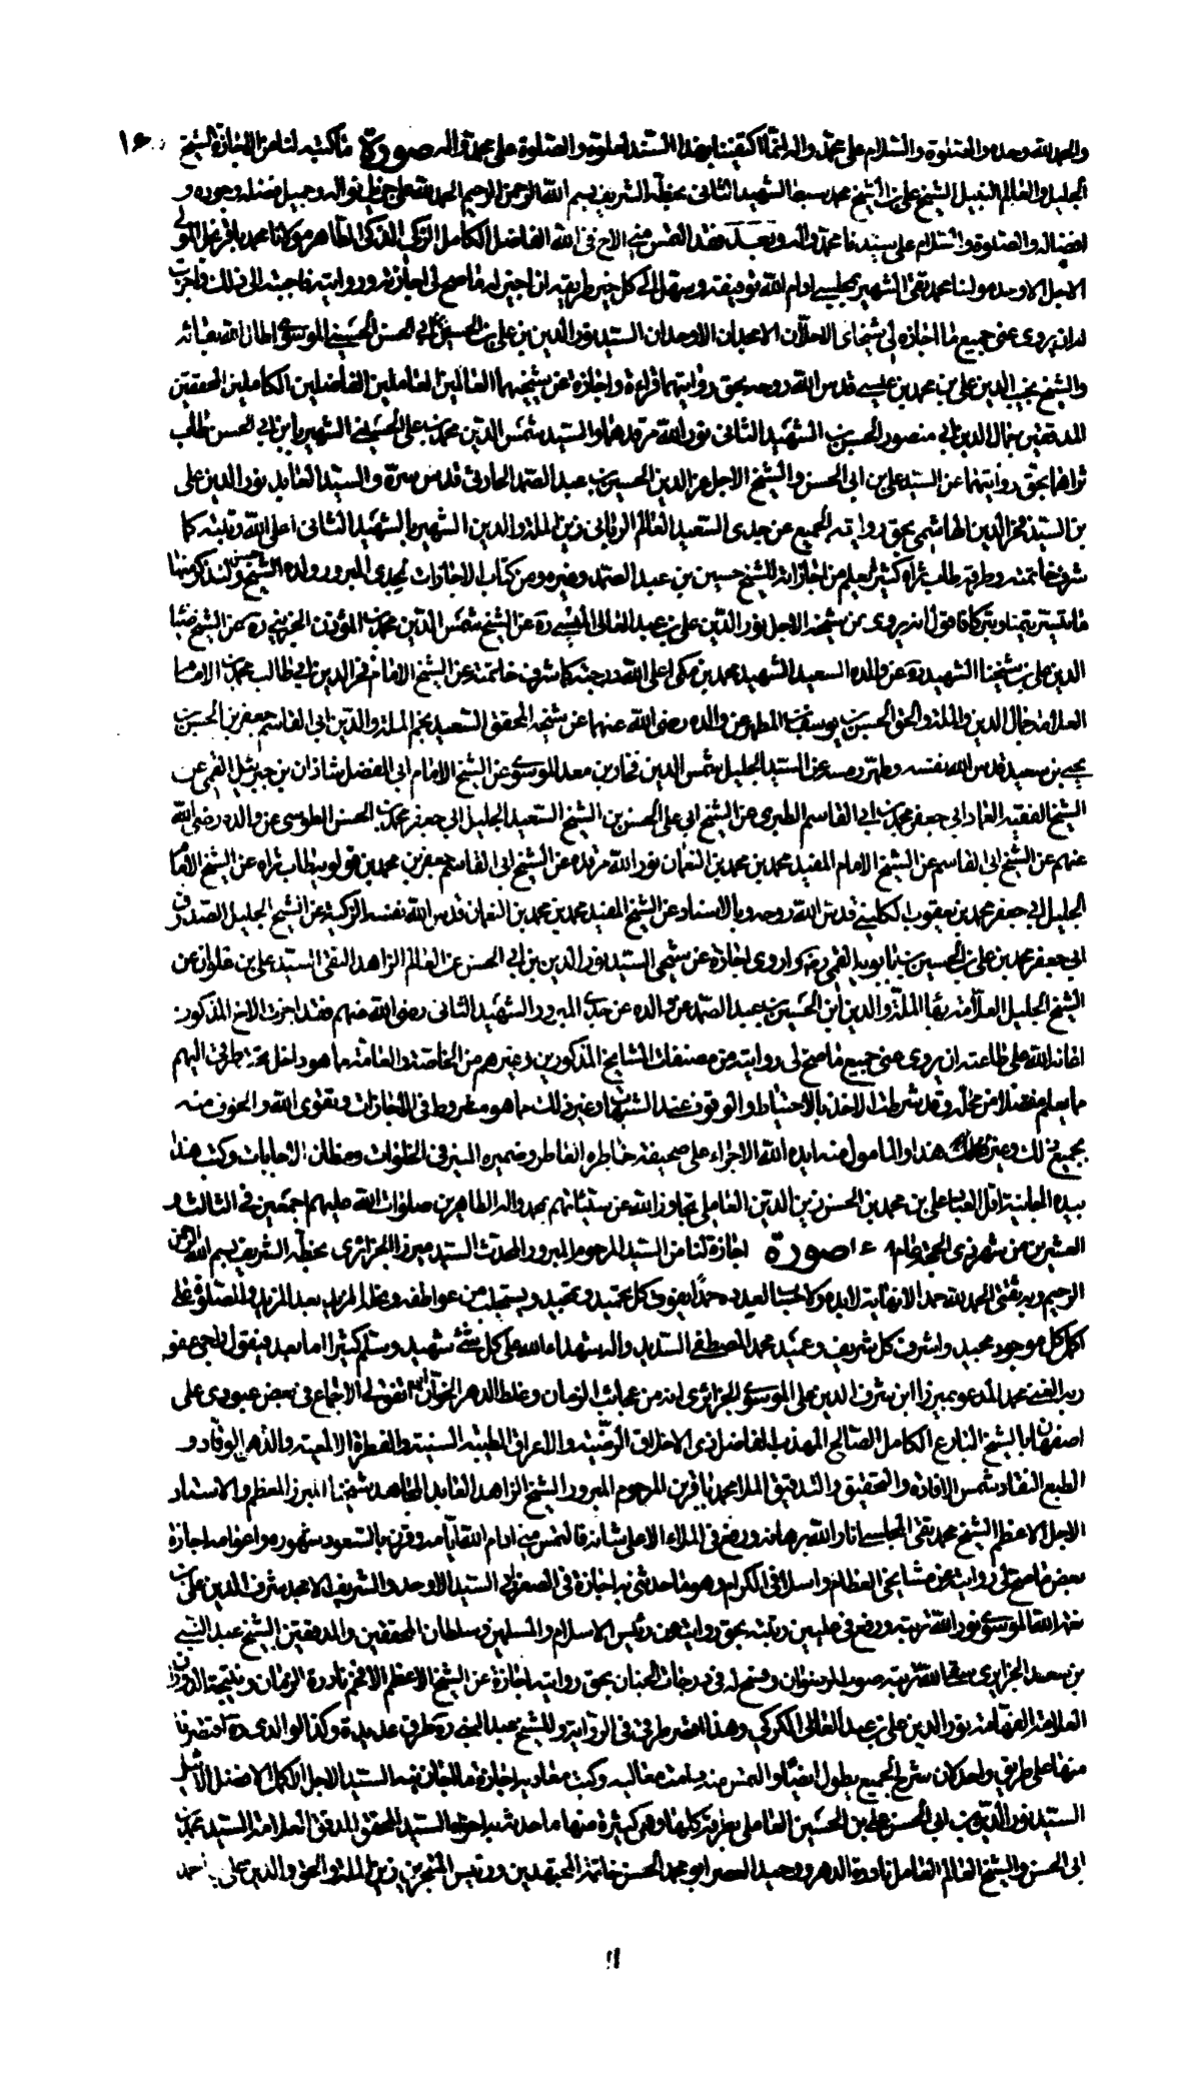 والحمد لله وحده والصلوة والسلام على محمد واله انما اكتفينا بهذا السند لعلوه والصلوة على محمد واله صورة ما كتبه لنا من الاجازة الشيخ
الجليل والعالم النبيل الشيخ على بن الشيخ محمد سبط الشهيد الثانى بخطه الشريف بسم الله الرحمن الرحيم الحمد لله على جزيل نواله وجميل فضله وجوده و
افضاله والصلوة والسلام على سيدنا محمد واله وبعد فقد التمس منى الاخ فى الله الفاضل الكامل الزكى الذكى الطاهر مولانا محمد باقر نجل المولى
الاجل الاوحد مولينا محمد تقى الشهير بمجلسى ادام الله توفيقه وسهل الى كل خير طريقه ان اجيز له ما صح لى اجازته وروايته فاجبته الى ذلك واجزت
له ان يروى عنى جميع ما اجازه لى شيخاى الاجلان الامجدان الاوحدان السيد نور الدين بن على بن الحسين بن ابى الحسن الحسينى الموسوى اطال الله بقائه
والشيخ نجيب الدين على بن محمد بن عيسى قدس الله روحه بحق روايتهما قراءة واجازة عن شيخيهما العالمين العاملين الفاضلين الكاملين المحققين
المدققين جمال الدين ابى منصور الحسن بن الشهيد الثانى نور الله مرقدهما والسيد شمس الدين محمد بن على الحسينى الشهير بابن ابى الحسن طاب
ثراهما بحق روايتهما عن السيد على بن ابى الحسن والشيخ الاجل عز الدين الحسين بن عبد الصمد الحارثى قدس سره والسيد العابد نور الدين على
بن السيد فخر الدين الهاشمى بحق رواية الجميع عن جدى السعيد العالم الربانى زين الملة والدين الشهير بالشهيد الثانى اعلى الله رتبته كما
شرف خاتمته وطرقه طاب ثراه كثيرة يعلم من اجازاته للشيخ حسين بن عبد الصمد وغيره ومن كتاب الاجازات لجدى المبرور ولده الشيخ حسن ولنذكر منها
ما تيسر تيمنا وتبركا فاقول انه يروى عن شيخه الاجل نور الدين على بن عبد العالى الميسى ره عن الشيخ شمس الدين محمد بن المؤذن الجزينى ره عن الشيخ ضياء
الدين على بن شيخنا الشهيد ره عن والده السعيد الشهيد محمد بن مكى اعلى الله درجته كما شرف خاتمته عن الشيخ الامام فخر الدين ابى طالب محمد بن الامام
العلامة جمال الدين والملة والحق الحسن بن يوسف بن المطهر عن والده رضى الله عنهما عن شيخه المحقق السعيد نجم الملة والدين ابى القاسم جعفر بن الحسن بن
يحيى بن سعيد قدس الله نفسه وطهر رمسه عن السيد الجليل شمس الدين فخار بن معد الموسوى عن الشيخ الامام ابى الفضل شاذان بن جبرئيل القمى عن
الشيخ الفقيه العماد ابى جعفر محمد بن ابى القاسم الطبرى عن الشيخ ابى على الحسن بن الشيخ السعيد الجليل ابى جعفر محمد بن الحسن الطوسى عن والده رضى الله
عنهم عن الشيخ ابى القاسم عن الشيخ الامام المفيد محمد بن محمد بن النعمان نور الله مرقده عن الشيخ ابى القاسم جعفر بن محمد بن قولويه طاب ثراه عن الشيخ الامام
الجليل ابى جعفر محمد بن يعقوب الكلينى قدس الله روحه وبالاسناد عن الشيخ المفيد محمد بن محمد بن النعمان قدس الله نفسه الزكية عن الشيخ الجليل الصدوق
ابى جعفر محمد بن على بن الحسين بن بابويه القمى ره واروى اجازة عن شيخى السيد نور الدين بن ابى الحسن عن العالم الزاهد التقى السيد على بن علوان عن
الشيخ الجليل العلامة بهاء الملة والدين ابن الحسين بن عبد الصمد عن والده عن جدى المبرور الشهيد الثانى رضى الله عنهم فقد اجزت الاخ المذكور
اعانه الله على طاعته ان يروى عنى جميع ما صح لى روايته من مصنفات المشايخ المذكورين وغيرهم من الخاصة والعامة مما هو داخل تحت طرقى اليهم
مما يعلم مفصلا من محله وقد شرطت الاخذ بالاحتياط والوقوف عند الشبهات وغير ذلك مما هو مشروط فى الاجازات وتقوى الله والخوف منه
بجميع ذلك وغير ذلك هذا والمامول منه ايده الله الاجراء على صحيفة خاطره العاطر وضميره المنير فى الخلوات ومظان الاجابات وكتب هذا
بيده الجانية اقل العباد على بن محمد بن الحسن بن زين الدين العاملى تجاوز الله عن سيئاتهم بمحمد واله الطاهرين صلوات الله عليهم اجمعين فى الثالث و
العشرين من شهر ذى الحجة صورة اجازة لنا من السيد المرحوم المبرور المحدث السيد ميرزا الجزائرى بخطه الشريف بسم الله الرحمن
الرحيم وبه ثقتى الحمد لله حمدا لا نهاية لابده ولا حساب لعدده حمدا يفوق كل تحميد وتمجيد ويستجلب من عواطفه وعطاه المزيد بعد المزيد والصلوة على
اكمل كل موجود مجيد واشرف كل شريف وعميد محمد المصطفى السديد واله شهداء الله على كل شئ شهيد وسلم كثيرا اما بعد فيقول الراجى عفو
ربه الغنى محمد المدعو بميرزا ابن شرف الدين على الموسوى الجزائرى انه من عجائب الزمان وغلط الدهر الخوان ان اتفق لى الاجتماع فى بعض عبورى على
اصفهان بالشيخ البارع الكامل الصالح المهذب الفاضل ذى الاخلاق الرضية والاعراق الطيبة السنية والفطرة الالمعية والذهن الوقاد و
الطبع النقاد شمس الافادة والتحقيق والتدقيق الملا محمد باقر بن المرحوم المبرور الشيخ الزاهد العابد المجاهد شيخنا المبرز المعظم والاستاد
الاجل الاعظم الشيخ محمد تقى المجلسى انار الله برهانه ورفع فى الملاء الاعلى شانه فالتمس منى ادام الله ايامه وقرن بالسعود شهوره واعوامه اجازة
بعض ما صح لى روايته عن مشايخى العظام واسلافى الكرام وهو ما حدثنى به اجازة فى الصغر ابى السيد الاوحد والشريف الامجد شرف الدين على بن
نعمة الله الموسوى نور الله تربته ورفع فى عليين رتبته بحق روايته عن رئيس الاسلام والمسلمين وسلطان المحققين والمدققين الشيخ عبد النبى
بن سعد الجزايرى سقى الله تربته صوب الرضوان وفسح له فى درجات الجنان بحق روايته اجازة عن الشيخ الاعظم الافخم نادرة الزمان ونتيجة الدوران
العلامة الفهامة نور الدين على بن عبد العالى الكركى وهذا اقصر طرقى فى الرواية وللشيخ عبد النبى ره طرق عديدة وكذا لوالدى ره اقتصرنا
منها على طريق واحد لان شرح الجميع يطول ايضا والتمس منه دامت معاليه وكبت معاديه اجازة ما اجازنيه السيد الاجل الاكمل الافضل الانبل
السيد نور الدين بن ابى الحسن على بن الحسين العاملى بطرقه كلها وهى كثيرة منها ما حدثه به اخواه السيد المحقق المدقق العلامة السيد محمد بن
ابى الحسن والشيخ العالم العامل نادرة الدهر ووحيد العصر ابو محمد الحسن خاتمة المجتهدين ورئيس المتبحرين زين الملة والحق والدين على بن احمد
١١